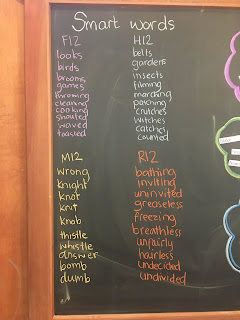 Smart words
F12
looks
birds
brooms
games
throwing
cleaning
cooking
shouted
waved
toasted
H12
belts
gardens
insects
filming
marching
crutches
witches
catches
counted
M12
wrong
knight
knot
knit
knob
thistle
whistle
answer
bomb
dumb
R12
bathing
inviting
uninvited
greaseless
freezing
breathless
unfairly
hairless
undecided
undivided